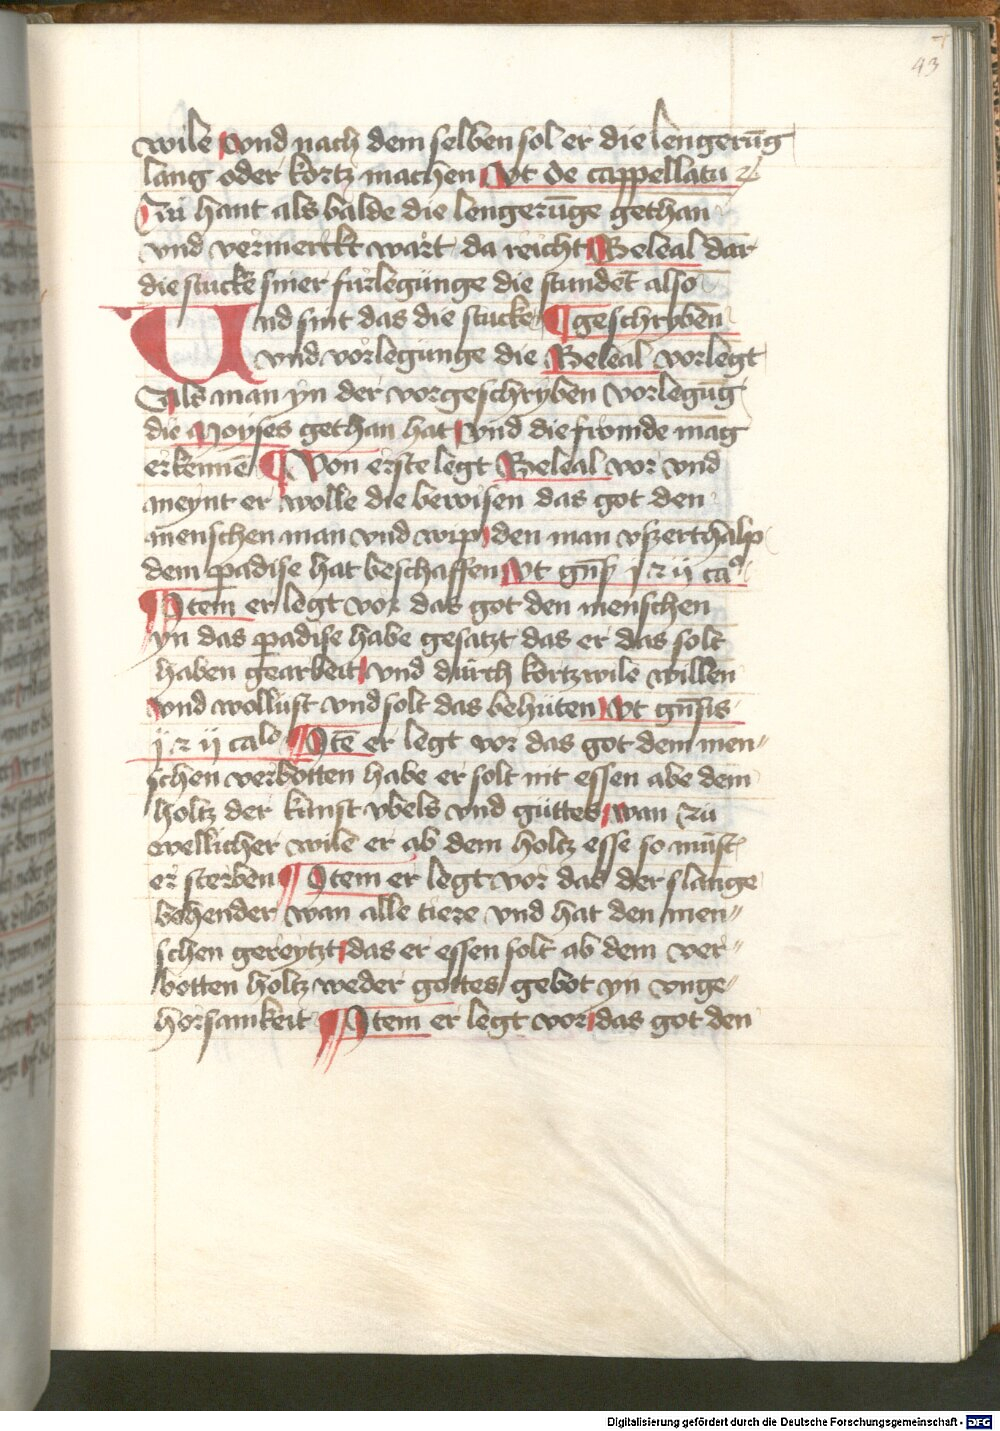 43
wile vnd nach dem selben sol er die lengerūg
lang oder kortz machen Vt de cappellatu
Zu hant als balde die lengerūge gethan
vnd vermerckt wart da reicht Beleal dar
die stucke siner furlegunge die stundēt also
Und sint das die stucke ¶ geschrybēn
vnd vorlegunge die Beleal vorlegt
Als man yn der vorgeschryben vorlegūg
die Moyses gethan hat vnd die fromde mag
erkennē ¶ Von erste legt Beleal vor vnd
meynt er wolle die bewisen das got den
menschen man vnd wip den man vszerthalp
dem padise hat beschaffen Vt gn̄s j z ij ca°
Item er legt vor das got den menschen
yn das padise habe gesatzt das er das solt
haben gearbeit vnd durch kortzwile willen
vnd wollust vnd solt das behuten Vt gn̄sis
j z ij calo Itē er legt vor das got dem men"
schen verbotten habe er solt nit essen abe dem
holtz der kunst vbels vnd guttes wan zu
wellicher wile er ab dem holtz esse so must
er sterben ¶ Item er legt vor das der slange
behender wan alle tiere vnd hat den men"
schen gereytzt das er essen solt ab dem ver"
botten holtz weder gottes gebot yn vnge"
horsamkeit ¶ Item er legt vor das got den
Digitalisierung gefördert durch die Deutsche Forschungsgemeinschaft - DFG